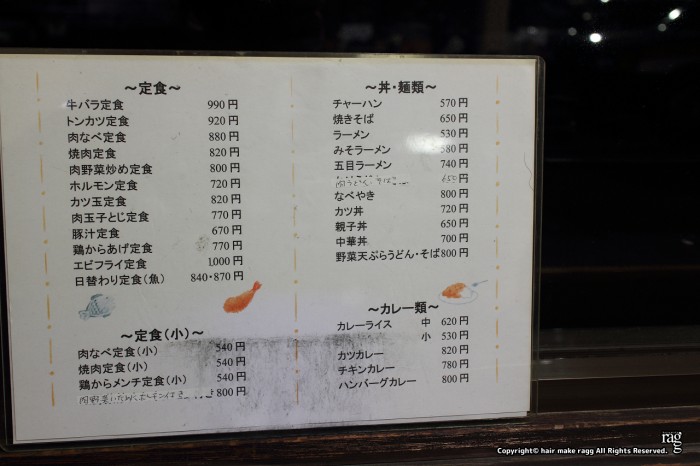 ～定食～
牛バラ定食 990円
トンカツ定食 920円
肉なべ定食 880円
焼肉定食 820円
肉野菜炒め定食 800円
ホルモン定食 720円
カツ玉定食 820円
肉玉子とじ定食 770円
豚汁定食 670円
鶏からあげ定食 770円
エビフライ定食 1,000円
日替わり定食(魚) 840・870円
～定食(小)～
肉なべ定食(小) 540円
焼肉定食(小) 540円
鶏からメンチ定食(小) 540円
800円
～丼・麺類～
チャーハン 570円
焼きそば 650円
ラーメン 530円
みそラーメン 580円
五目ラーメン 740円
肉うどん・そば 650円
なべやき 800円
カツ丼 720円
親子丼 650円
中華丼 700円
野菜天ぷらうどん・そば 800円
～カレー類～
カレーライス 中 620円
小 530円
カツカレー 820円
チキンカレー 780円
ハンバーグカレー 800円
rag
Copyright© hair make ragg All Rights Reserved.